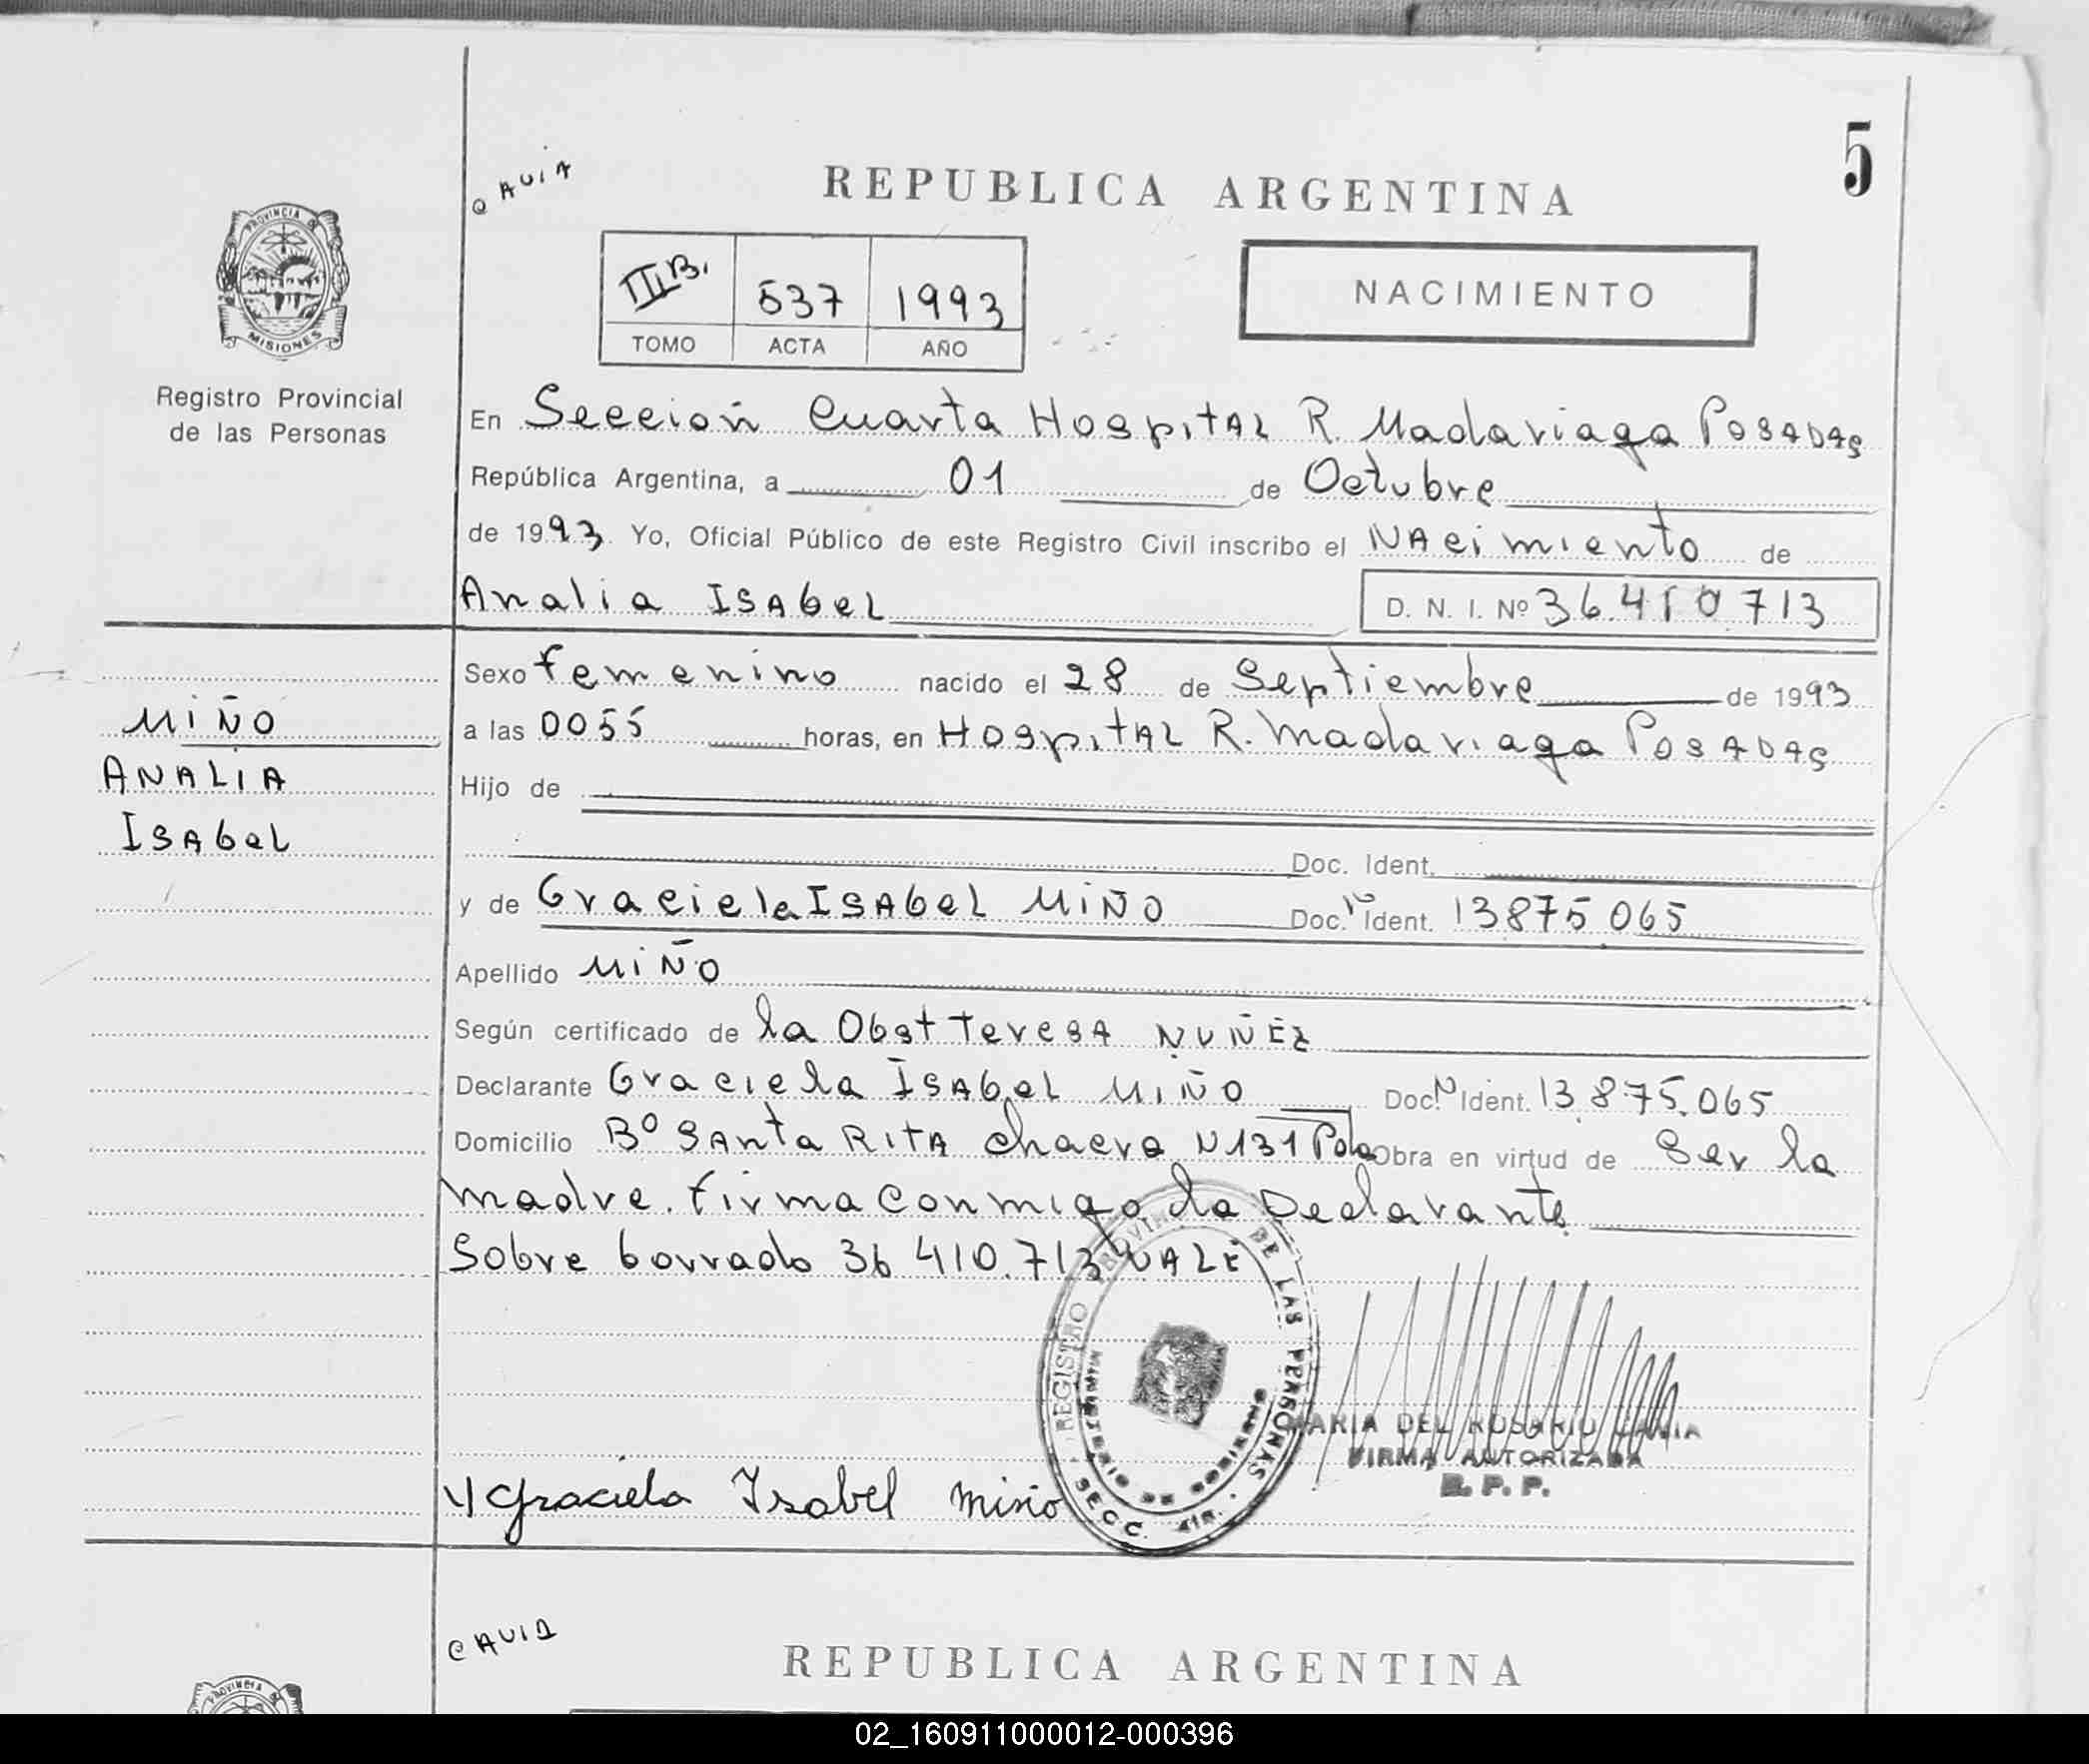 5
CAVIA
REPUBLICA ARGENTINA
PROVINCIA DE
MISIONES
Registro Provincial
de las Personas
III B. 537 1993
TOMO ACTA AÑO
NACIMIENTO
En Sección Cuarta Hospital R. Madariaga Posadas
República Argentina, a 01 de Octubre
de 1993. Yo, Oficial Público de este Registro Civil inscribo el Nacimiento de
Analia Isabel D. N. I. Nº 36.410.713
Sexo femenino nacido el 28 de Septiembre de 1993
a las 0055 horas, en Hospital R. Madariaga Posadas
Hijo de
Doc. Ident.
y de Graciela Isabel Miño Doc. N Ident. 13875.065
Apellido Miño
Según certificado de la Obst Teresa Nuñez
Declarante Graciela Isabel Miño Doc. N Ident. 13.875.065
Domicilio Bº Santa Rita Chacra N 131 Pdas Obra en virtud de Ser la
madre. firma conmigo la Declarante
Sobre borrado 36 410.713 VALE
MIÑO
ANALIA
ISAbel
REGISTRO PROVINCIAL DE LAS PERSONAS
MINISTERIO DE GOBIERNO
SECC. 4ta.
MARIA DEL ROSARIO CAVIA
FIRMA AUTORIZADA
R. P. P.
Graciela Isabel Miño
CAVIA
REPUBLICA ARGENTINA
PROVINCIA
02_160911000012-000396